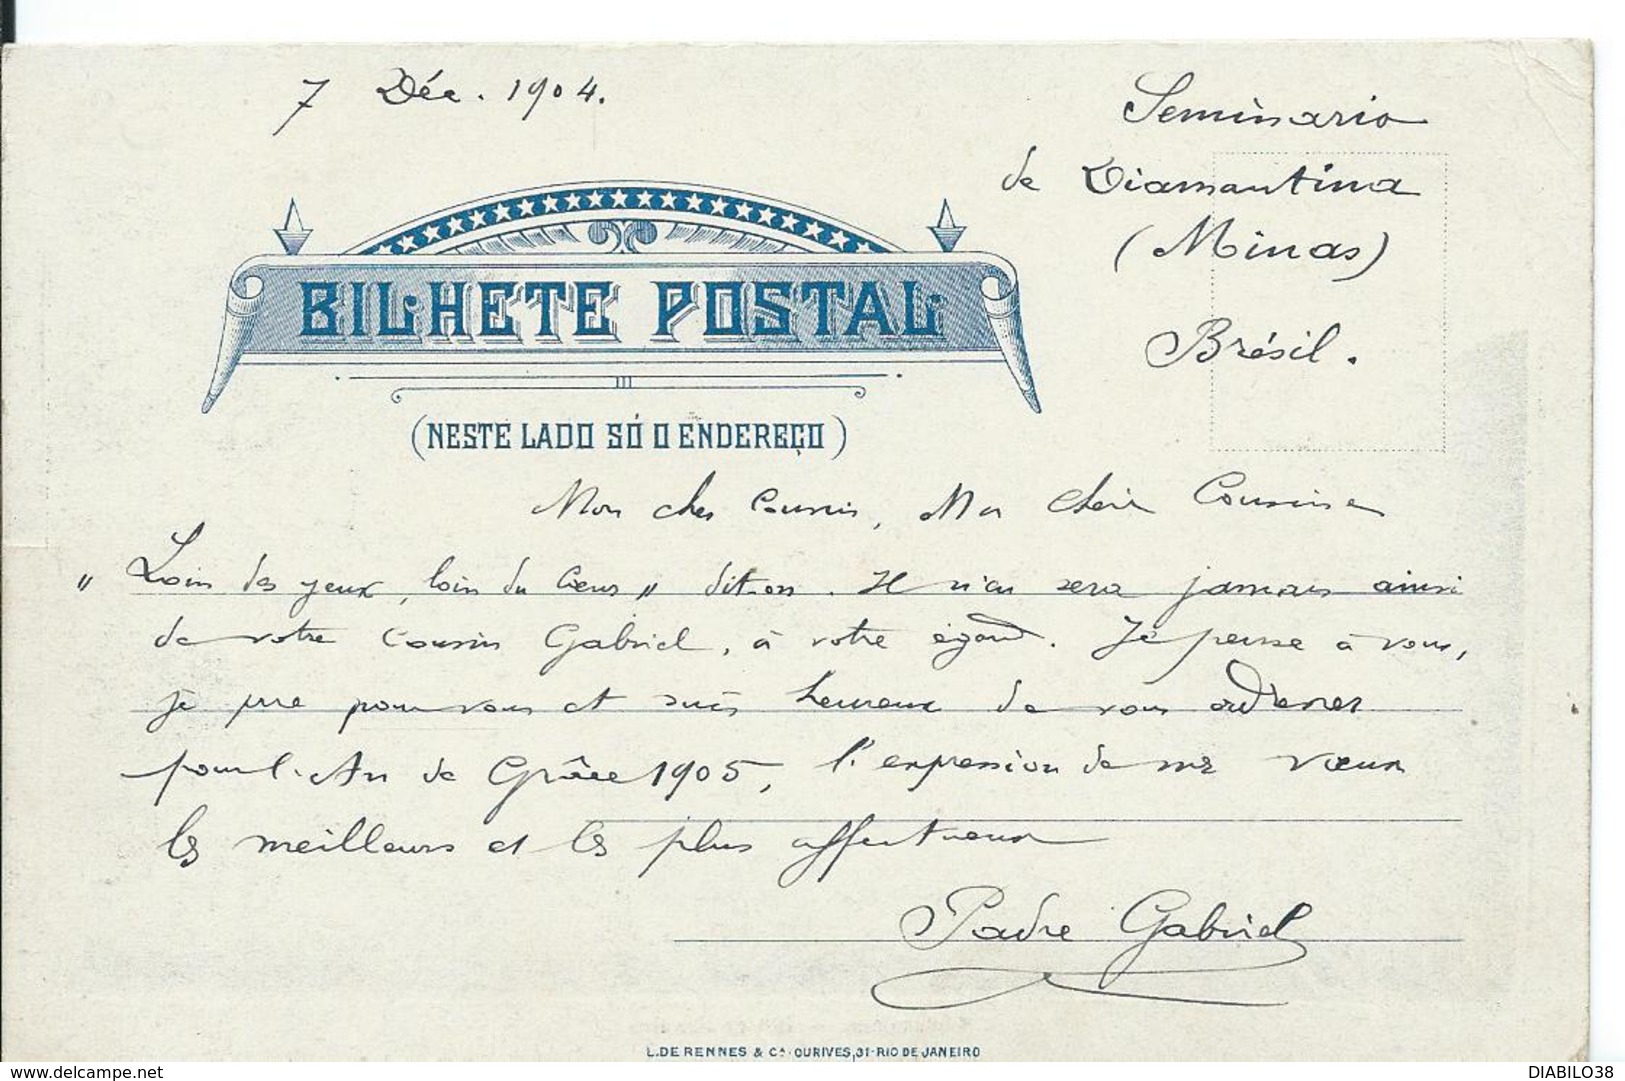 7 Déc. 1904.
Seminario
de Diamantina
(Minas)
Brésil.
BILHETE POSTAL
(NESTE LADO SÓ O ENDEREÇO)
Mon cher Cousin, Ma chère Cousine
"Loin des yeux, loin du Cœur" dit-on. Il n'en sera jamais ainsi
de votre Cousin Gabriel, à votre égard. Je pense à vous,
je prie pour vous et suis heureux de vous adresser
pour l'An de Grâce 1905, l'expression de mes vœux
les meilleurs et les plus affectueux
Padre Gabriel
L. DE RENNES & Cᴬ. OURIVES, 31-RIO DE JANEIRO
www.delcampe.net
DIABILO38